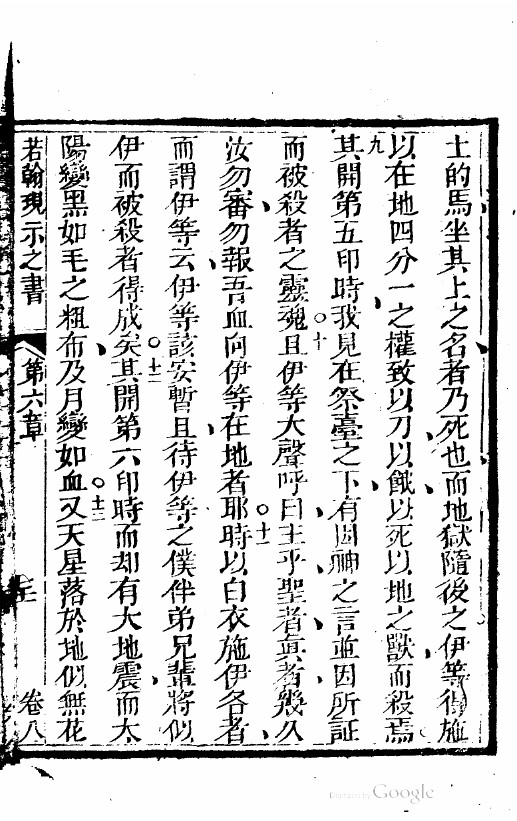 士的馬坐其上之名者乃死也而地獄隨後之伊等得施
以在地四分一之權致以刀以餓以死以地之獸而殺焉
九其開第五印時我見在祭臺之下有因神之言並因所証
而被殺者之靈魂○十且伊等大聲呼曰主乎聖者真者幾久
汝勿審勿報吾血向伊等在地者耶○十一時以白衣施伊各者
而謂伊等云伊等該安暫且待伊等之僕伴弟兄輩將似
伊而被殺者得成矣○十二其開第六印時而却有大地震而太
陽變黑如毛之粗布及月變如血○十三又天星落於地似無花
若翰現示之書 第六章 卷八
Digitized by Google